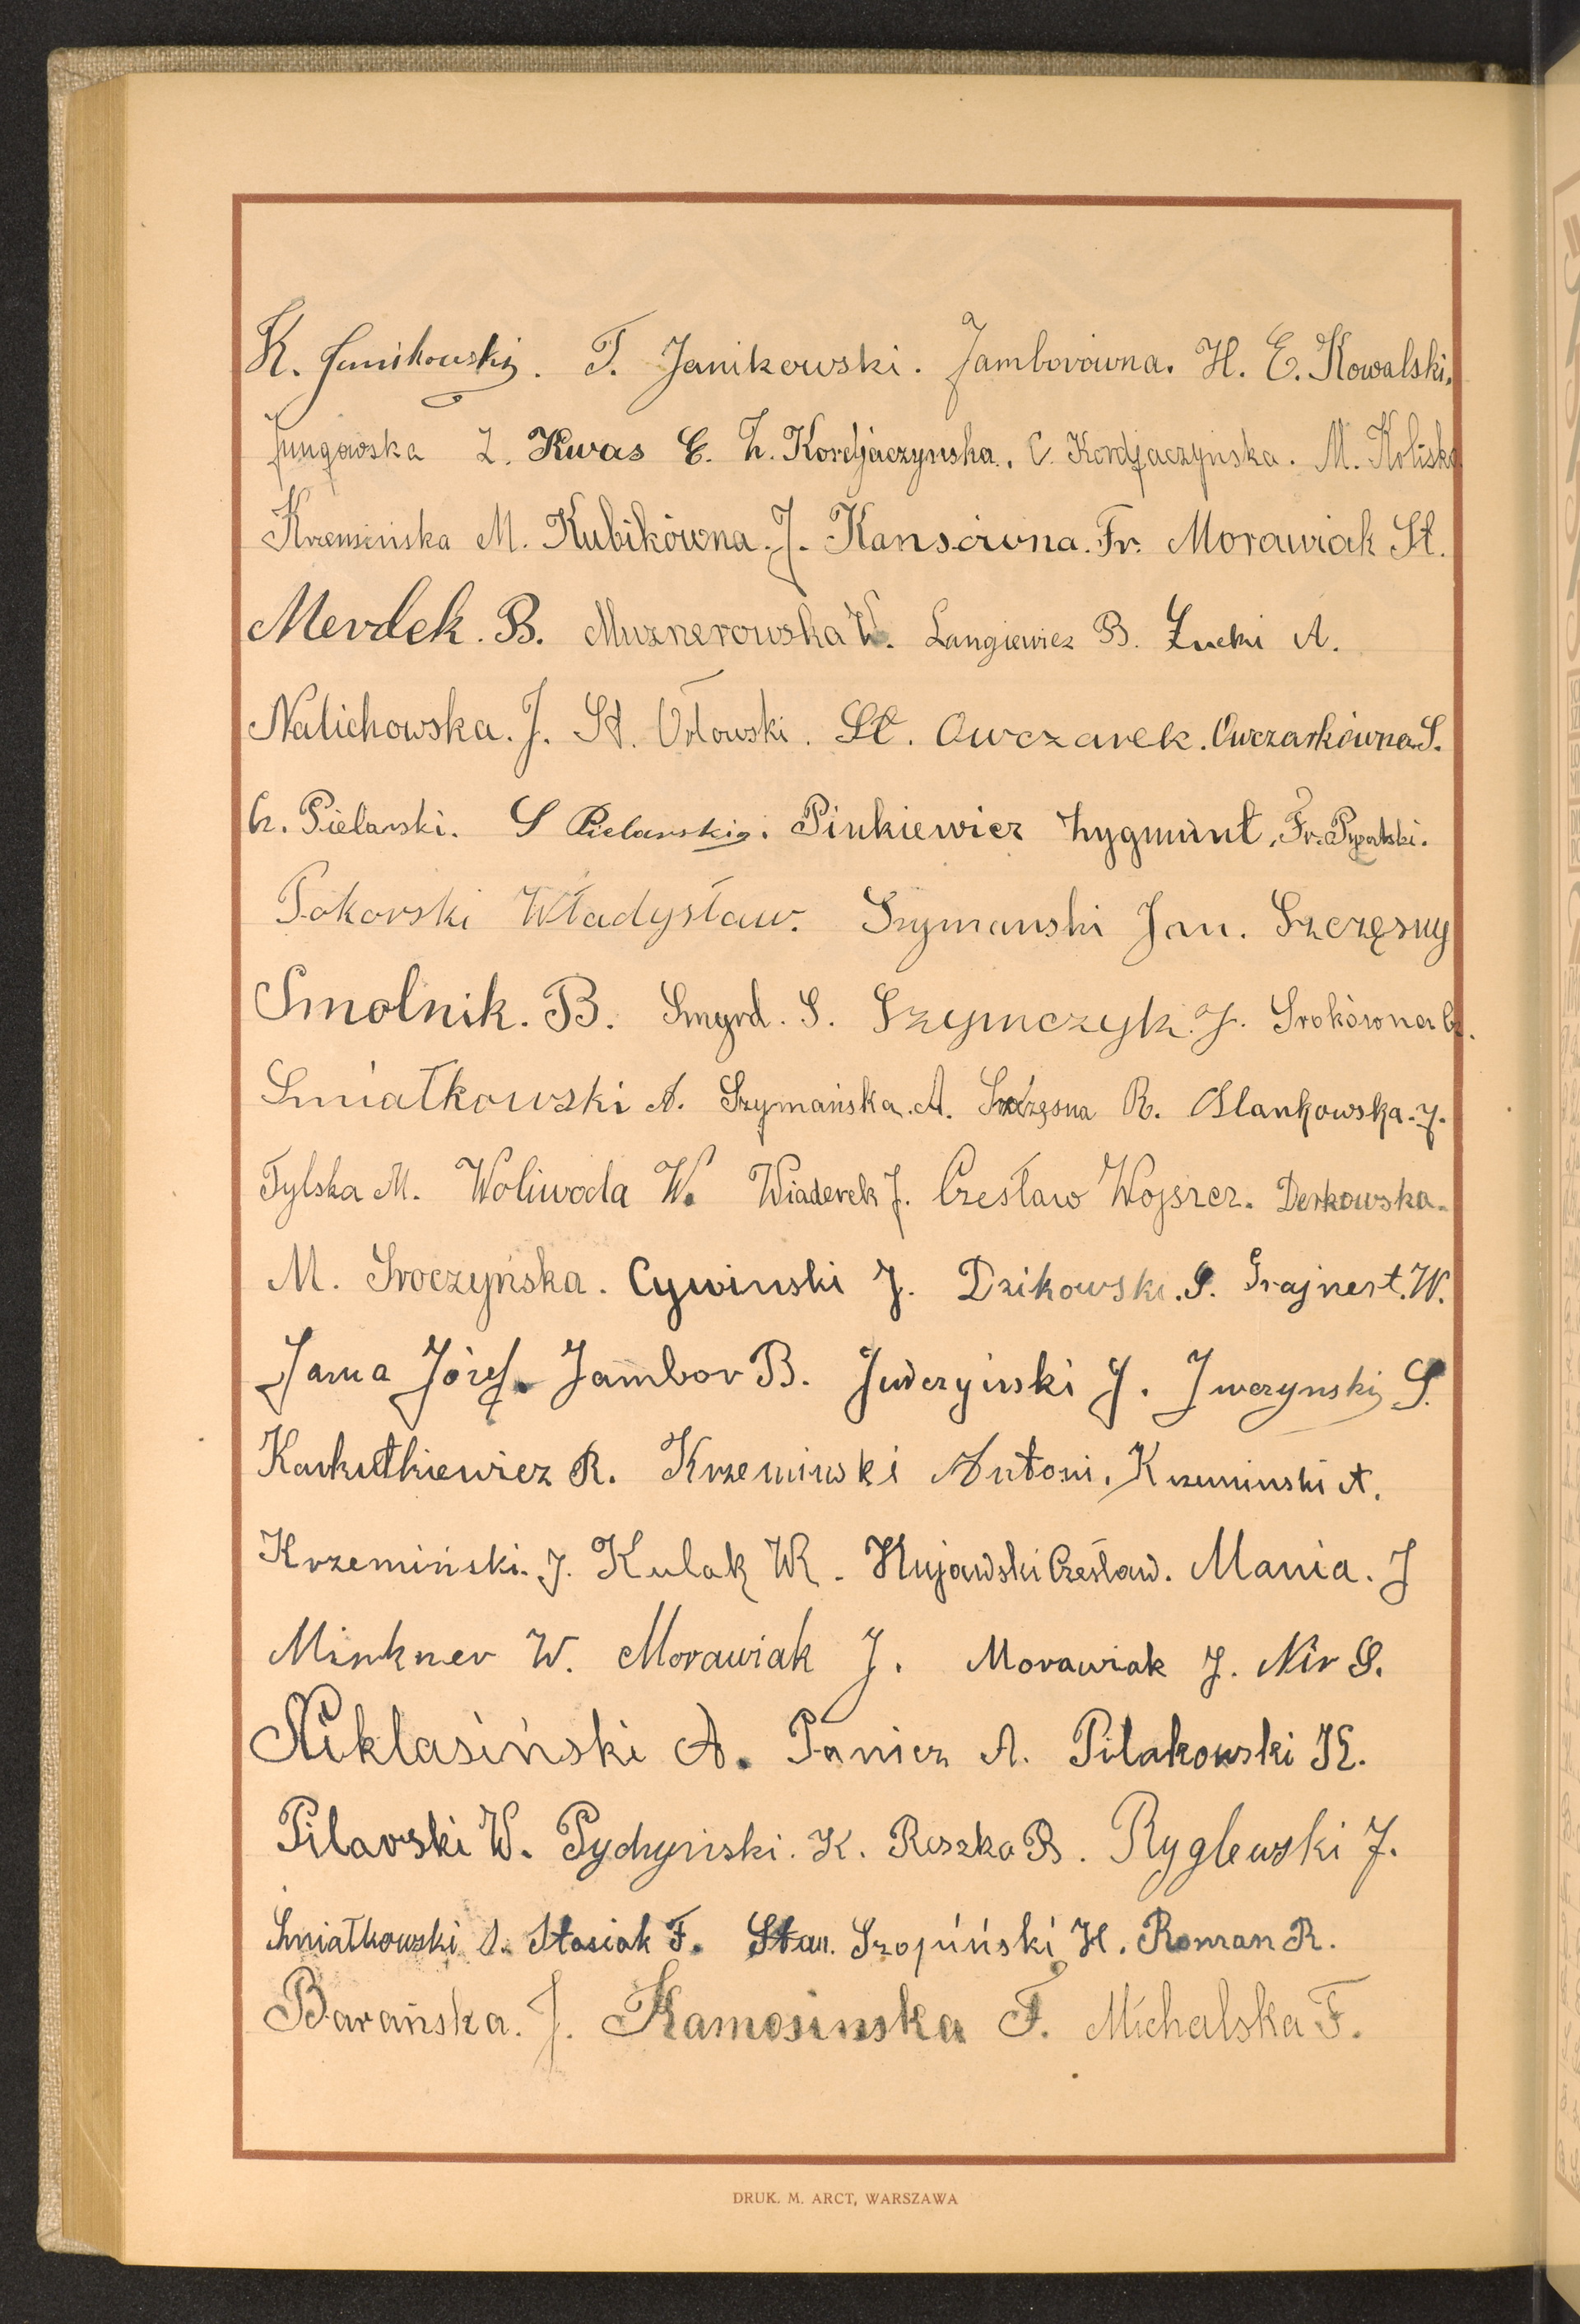 K. Janikowski. T. Janikowski. Jamborówna. H. E. Kowalski.
Jungowska Z. Kwas E. Z. Kordjaczynska. C. Kordjaczyńska. M. Kolisko
Krzemińska M. Kubikówna. J. Kansówna. Fr. Morawiak St.
Merdek. B. Muznerowska W. Langiewicz B. Łucki A.
Nalichowska. J. St. Orłowski. St. Owczarek. Owczarkówna S.
Cz. Pielarski. S Pielarski. Pinkiewicz Zygmunt. Fr.
Pokorski Władysław. Szymanski Jan. Szczęsny
Smolnik. B. Smyrd. S. Szymczyk. J. Srokówna Cz.
Śmiałkowski A. Szymańska. A. Szczęsna R. Slankowska. J.
Tylska M. Woliwoda W. Wiaderek J. Czesław Wojszcz. Derkowska.
M. Sroczyńska. Cywinski J. Dzikowski. S. Grajnert. W.
Jama Józef. Jambor B. Juderzyński J. Jwczynski S.
Karkutkiewicz R. Krzeminski Antoni. Krzeminski A.
Krzemiński. J. Kulak W. Kujawski Czesław. Mania. J
Minkner W. Morawiak J. Morawiak J. Nir S.
Niklasiński A. Panicz A. Pilakowski K.
Pilarski W. Pydzyński. K. Reszka B. Ryglewski J.
Śmiałkowski S. Stasiak F. Stan. Szopiński H. Roman R.
Barańska. J. Kamosinska F. Michalska F.
DRUK. M. ARCT, WARSZAWA